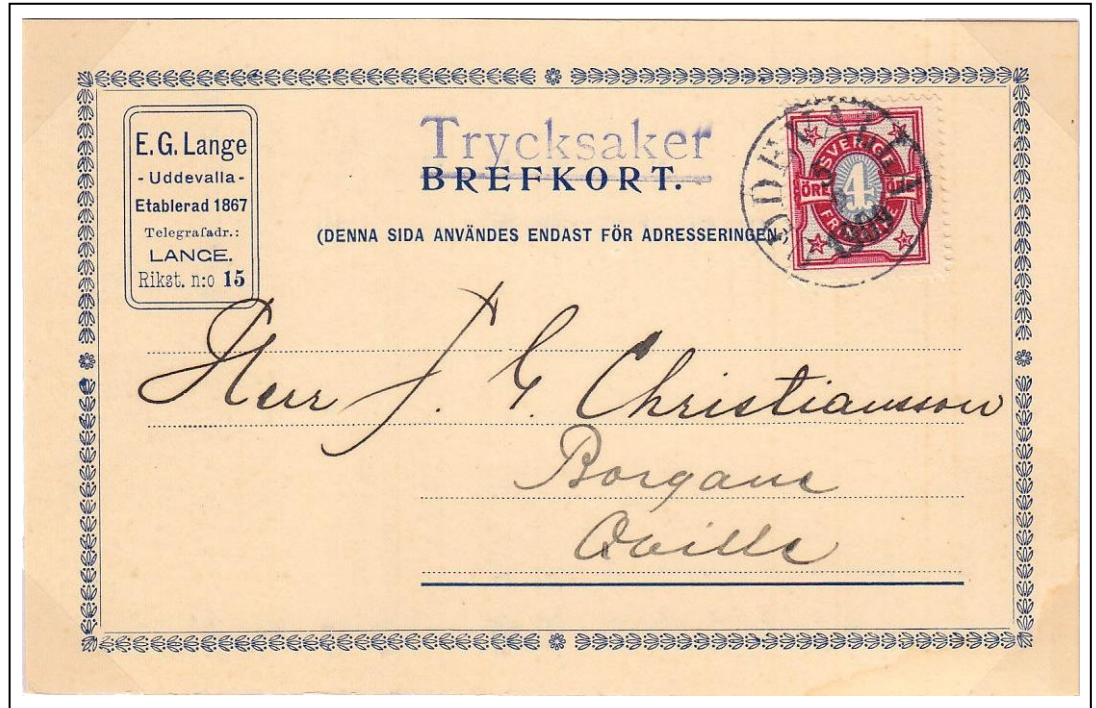 E.G. Lange
- Uddevalla -
Etablerad 1867
Telegrafadr.:
LANGE.
Rikst. n:o 15
Trycksaker
BREFKORT.
(DENNA SIDA ANVÄNDES ENDAST FÖR ADRESSERINGEN
UDDEVALLA
SVERIGE
ÖRE 4 ÖRE
Herr J. G. Christiansson
Borgane
Qville